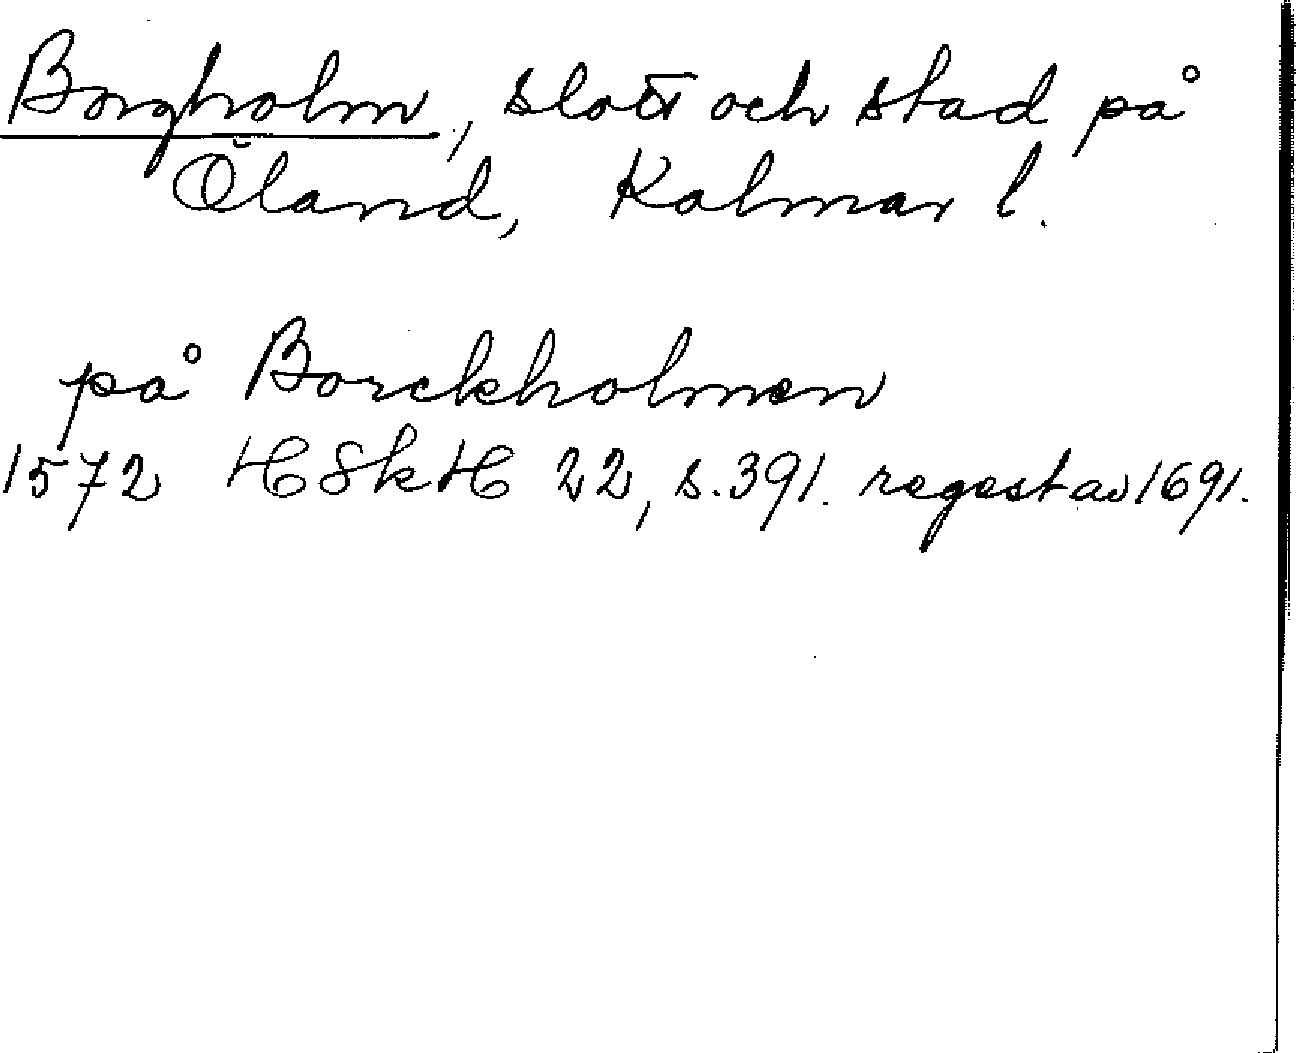 Borgholm, slott och stad på
Öland, Kalmar l.
på Borckholmen
1572 HSkH 22, s. 391. regest av 1691.